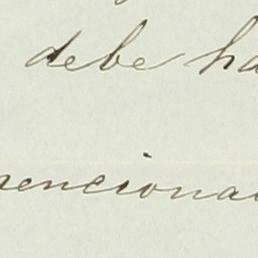 debe ha
mencionad